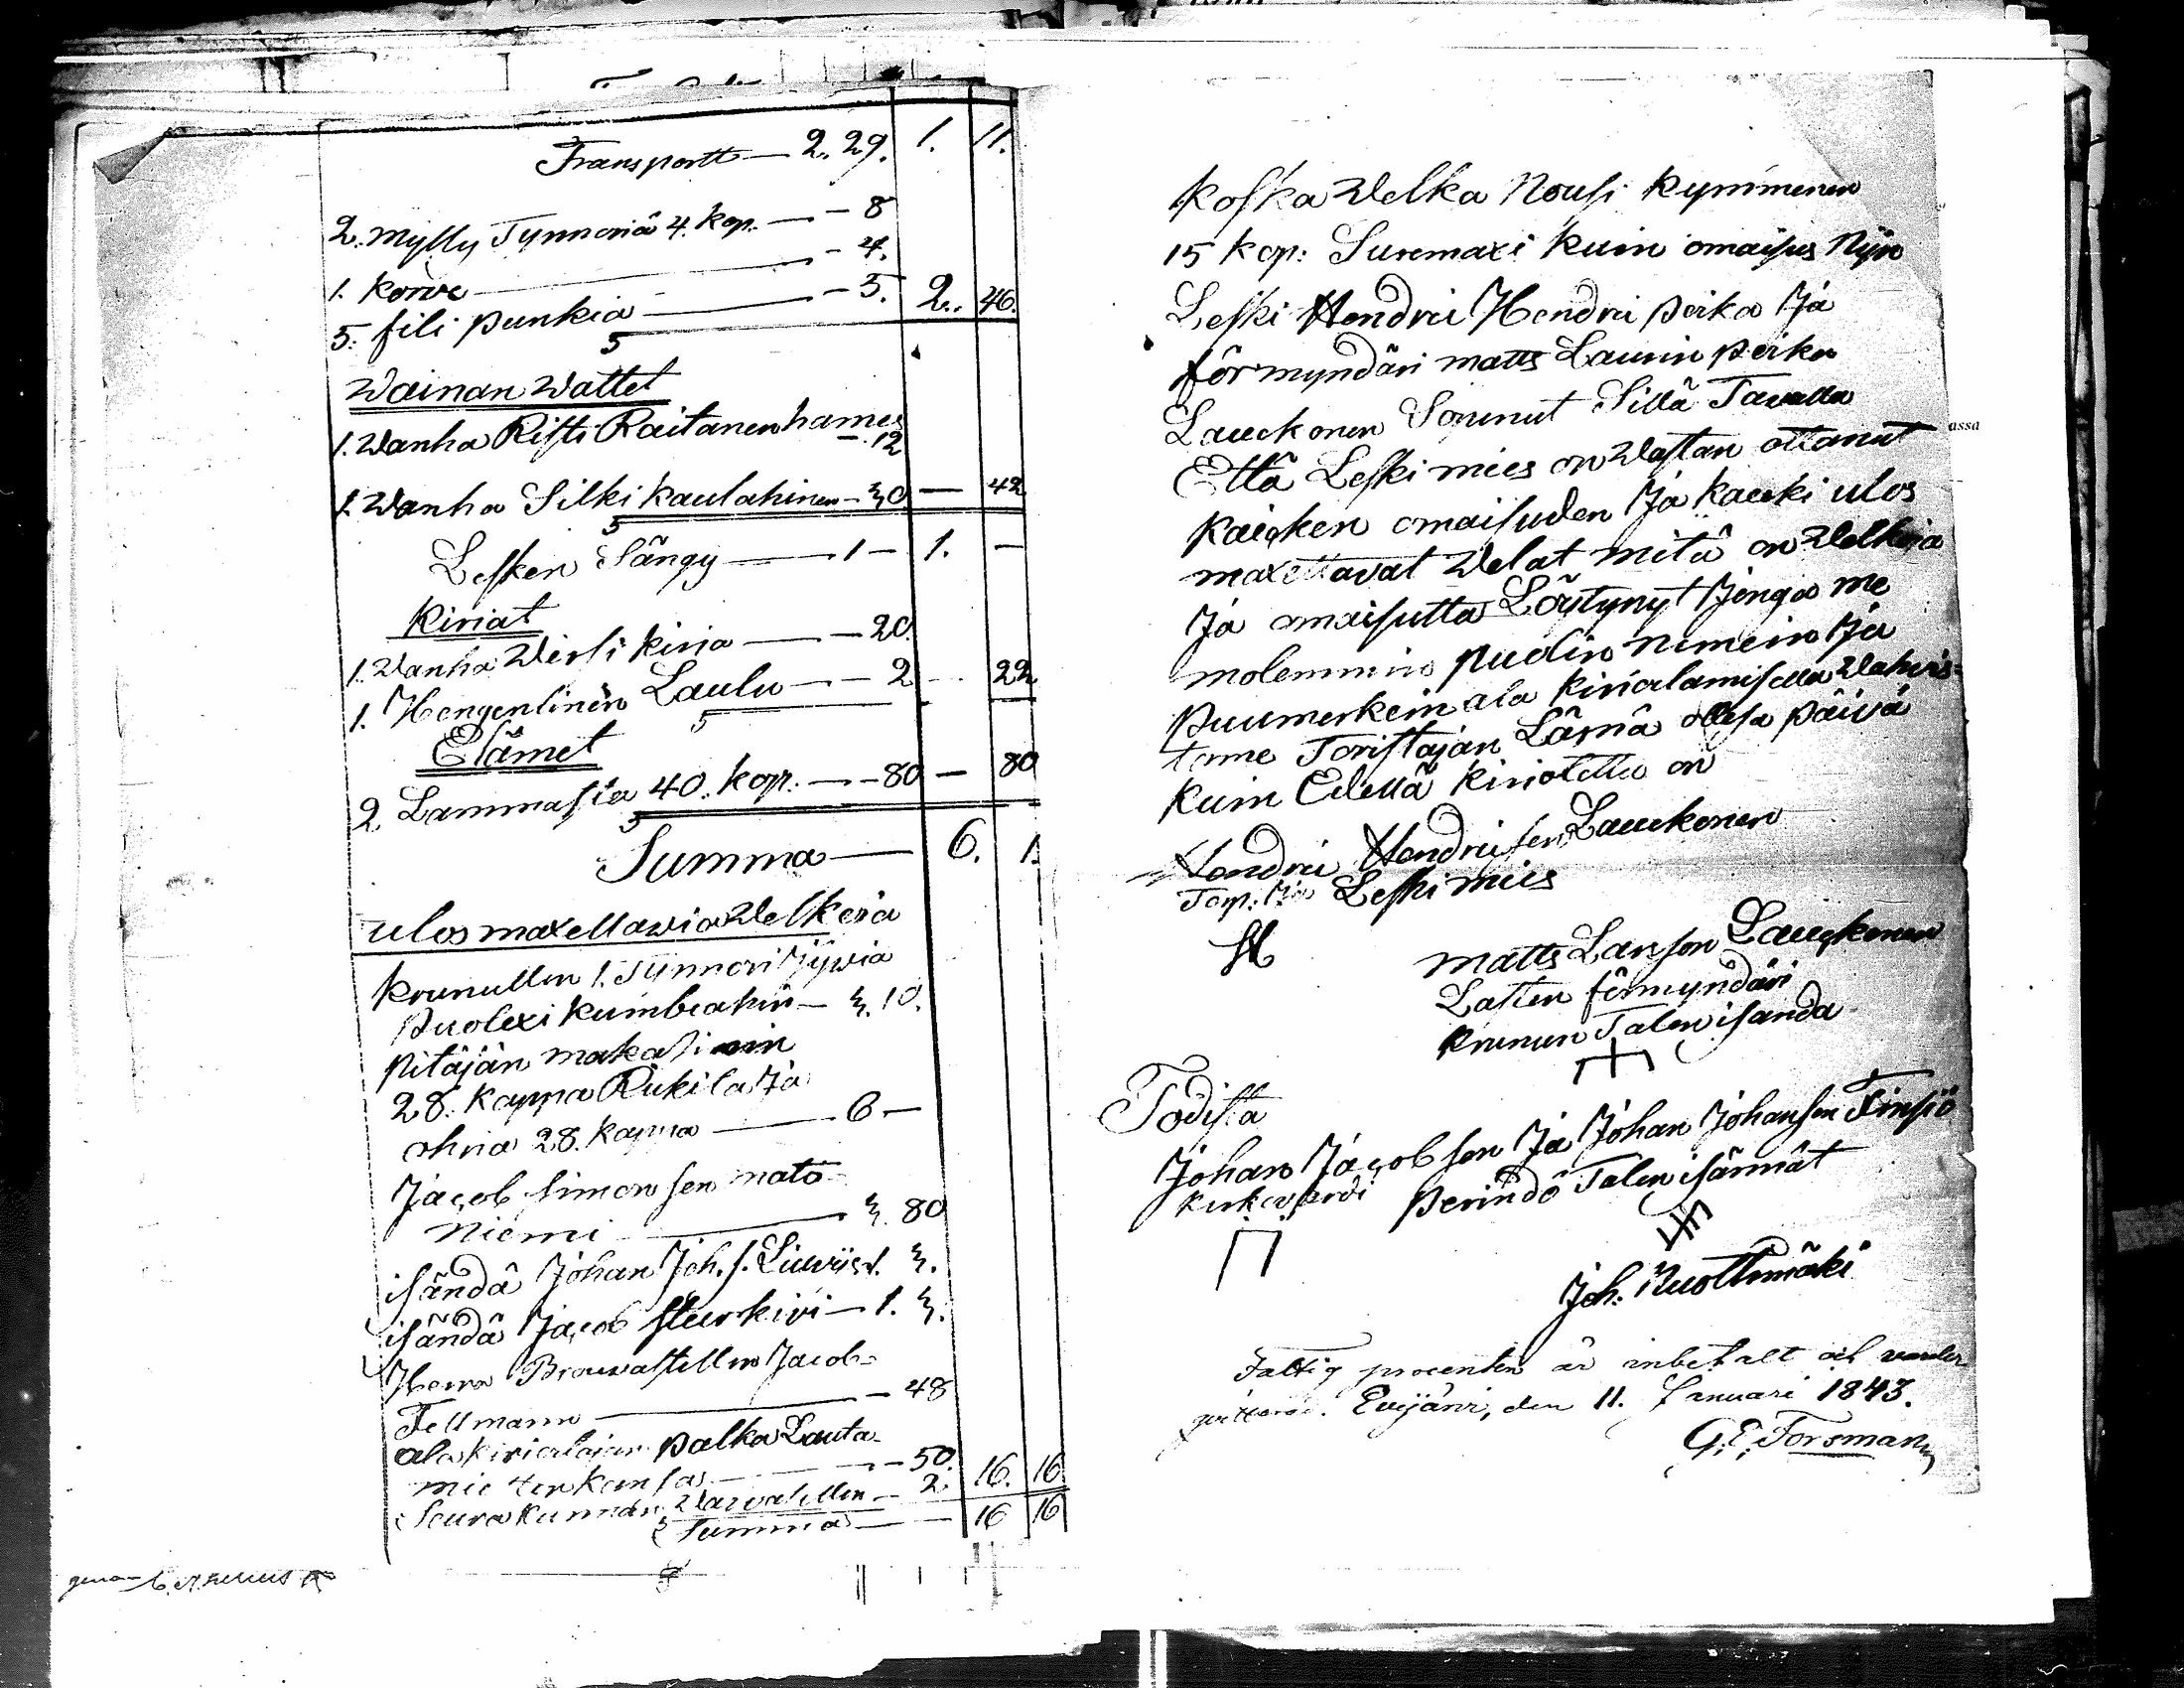 Transportt — 2. 29. 1. 11.
2. Mylly Tynnoriä 4. kop. — — 8
1. korve — — 4.
5. fili punkia — — 5. 2. 46.
Wainan Wattet
1. Wanha Risti Raitanen hames — 12
1. Wanha Silki kaulahinen — 30 — 42
Lesken Sängy — 1 — 1. —
Kiriat
1. Wanha Wirsi kirja — — 20.
1. Hengenlinen Laulu — — 2 — 22
Elämet
2. Lammasta 40. kop. — — 80 — 80
Summa — 6. 1.
ulos maxettawia Welkoia
krunullen 1. Tynnori Jywia
puolexi kumbeahin — 3. 10.
pitäjän makasinin
28. kappa Rukila Ja
ohria 28. kappa — 6 —
Jacob Simonsen nato
Niemi — 3. 80
isändä Johan Joh. s. 3.
isändä Jacob — 1. 3.
Herra Browastillen Jacob
Fellmann — — 48
ala kirialajan palka Lauta
mie ten kansas — — 50. 16. 16
Seurakunnan — 2.
Summa — — 16 16
koska Welka Nousi kymmenen
15 kop: Suremaxi kuin omaisus Nijn
Leski Hendrii Hendrii poika Ja
förmyndäri matts Laurin poika
Lauckonen Sopinut Sillä Tavalla
Että Leskimies on Wastan ottanut
kaicken omaisuden Ja kaicki ulos
maxettavat Welat mitä on Welkoja
Ja omaisutta Löytynyt Jonga me
molemmin puolin nimein Ja
puumerkein ala kirialamisella Wahwis-
tame Toristajan Läsnä ollesa päivä
kuin Edellä kiriotettu on
Hendrii Hendriisen Lauckonen
Leskimies
H
matts Larson Lauckonen
Lasten förmyndäri
krunun Talon isända
Todista
Johan Jacobsen Ja Johan Johansen Finsiö
perindö Talon isännät
Joh: Nuottimäki
Fattig procenten är inbetalt och
Evijärvi, den 11. Januari 1843.
G. E. Forsman